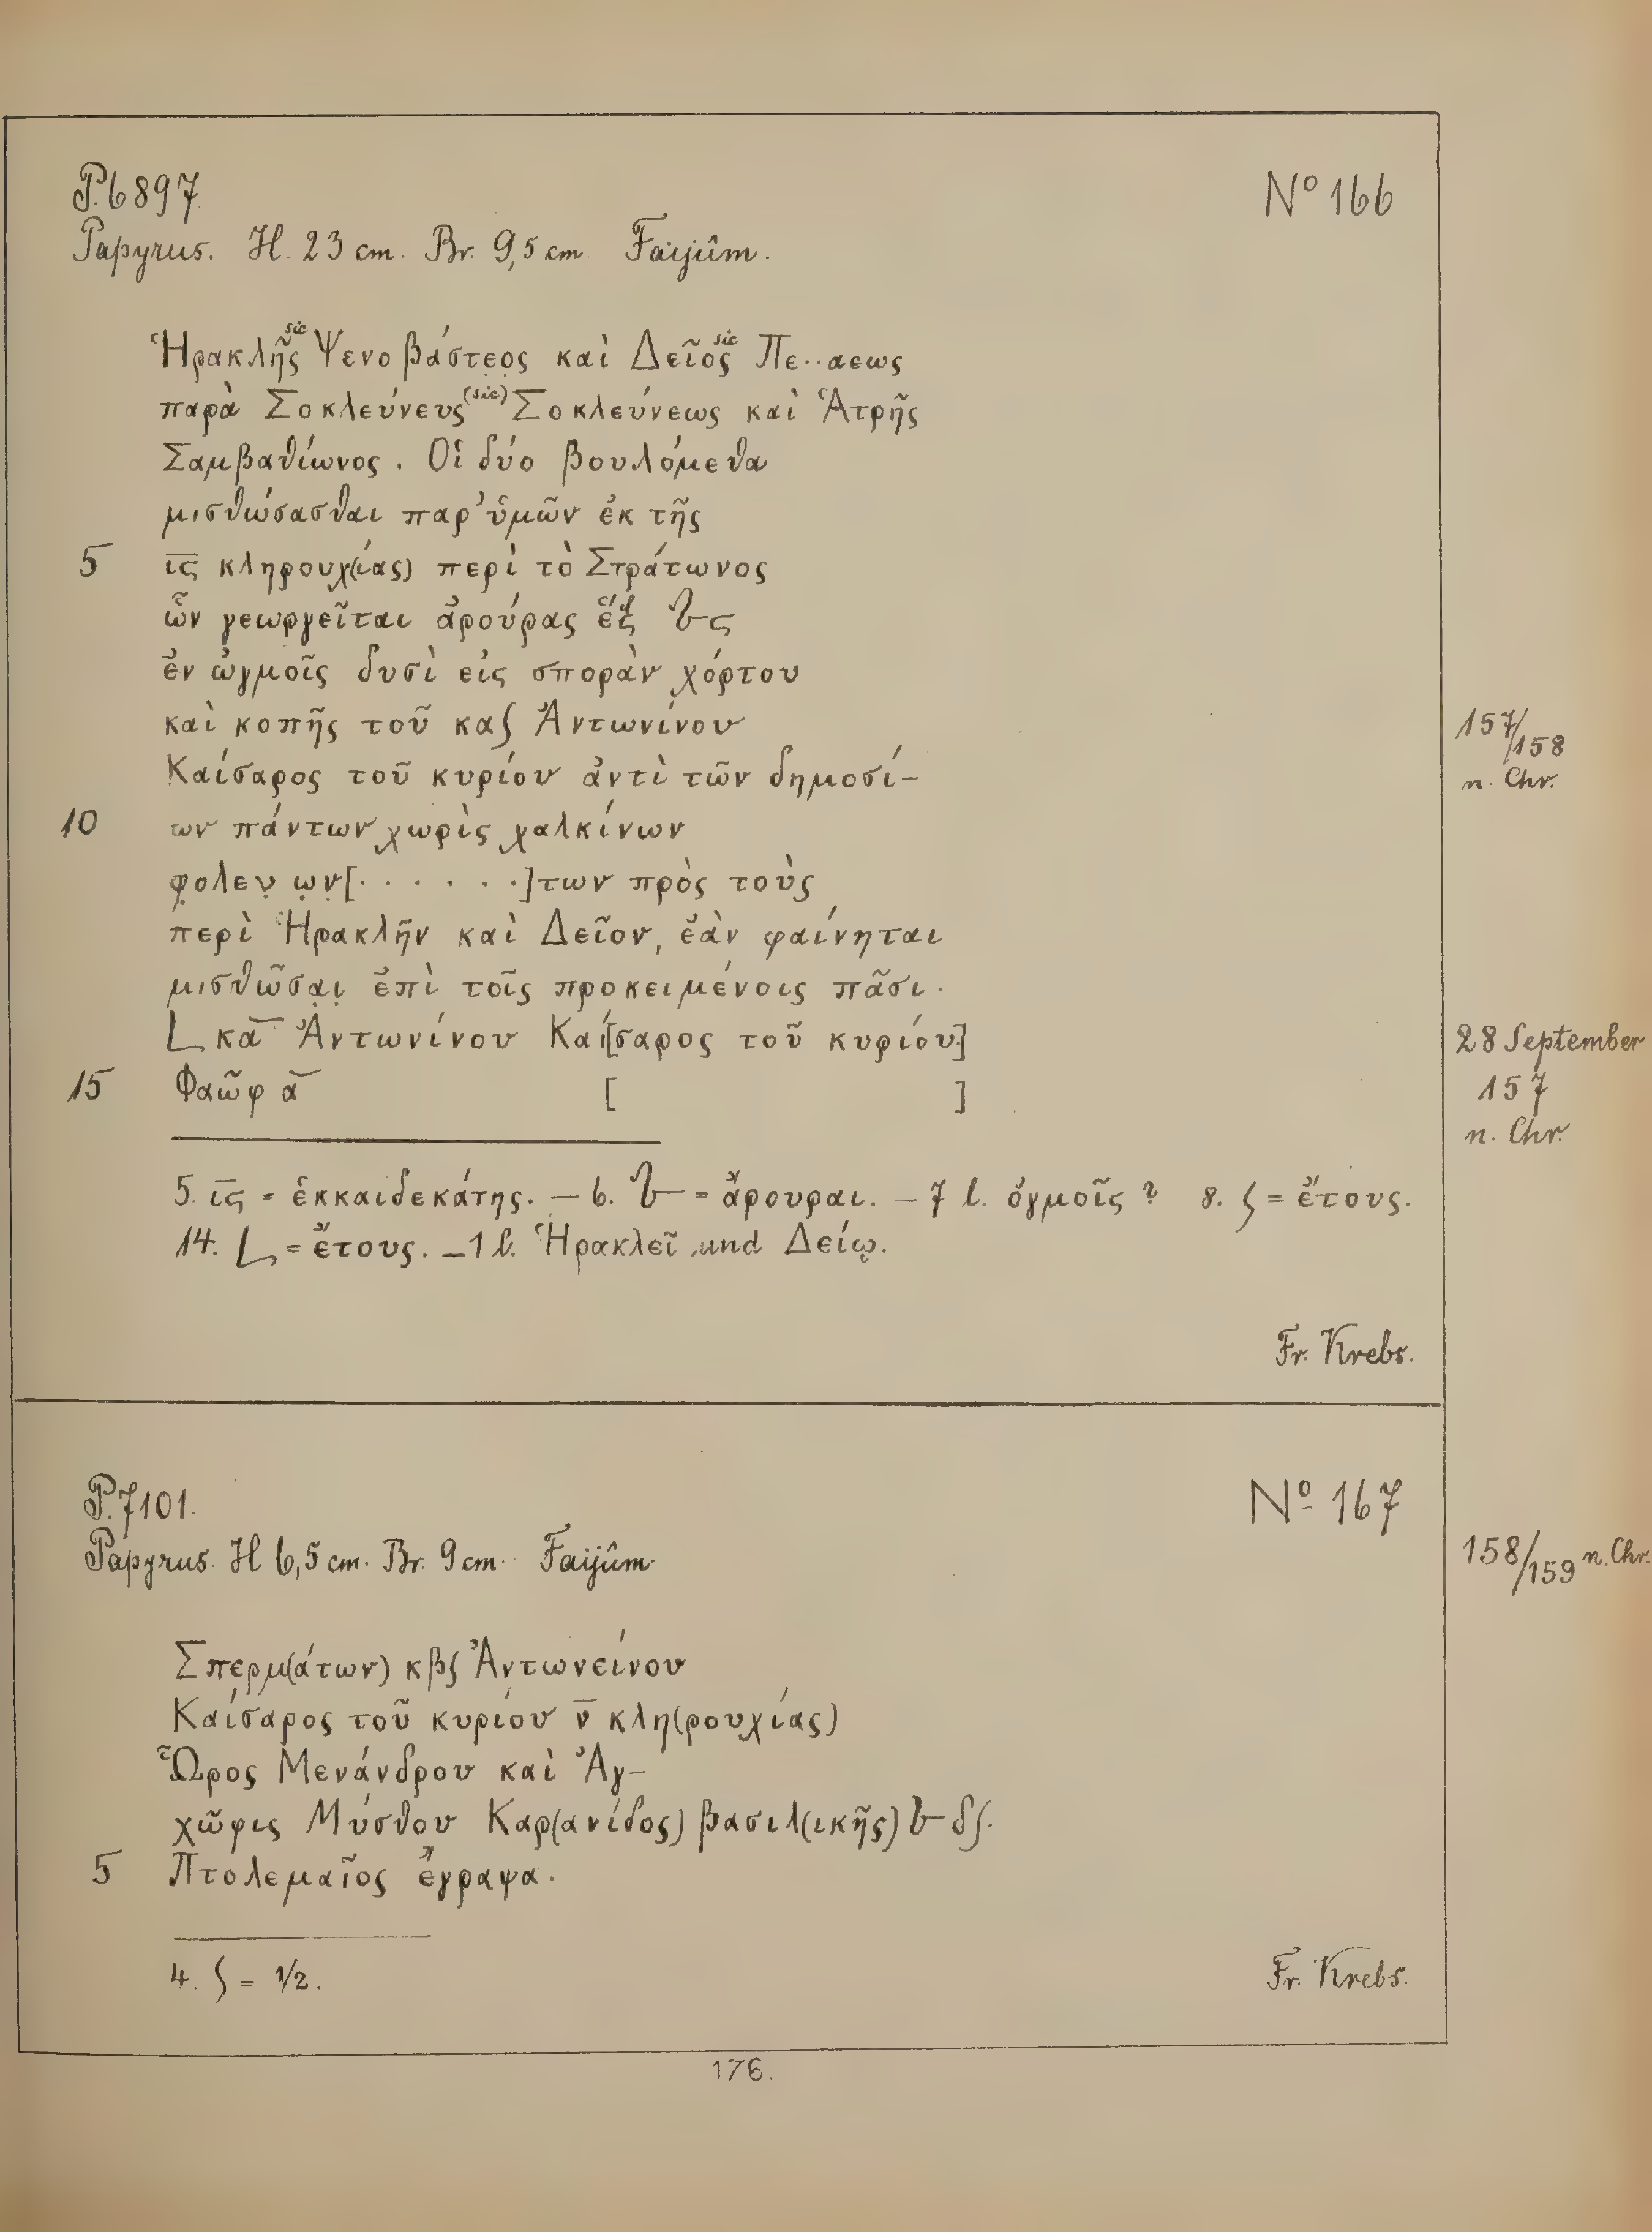 P. 6897.
Nº 166
Papyrus. H. 23 cm. Br. 9,5 cm. Faijûm.
Ἡρακλῆς (sic) Ψενοβάστεος καὶ Δεῖος (sic) Πε..αεως
παρὰ Σοκλεύνευς (sic) Σοκλεύνεως καὶ Ἁτρῆς
Σαμβαθίωνος. Οἱ δύο βουλόμεθα
μισθώσασθαι παρ' ὑμῶν ἐκ τῆς
5 ι̅ς̅ κληρουχ(ίας) περὶ τὸ Στράτωνος
ὧν γεωργεῖται ἀρούρας ἕξ 𐆂 ς
ἐν ὠγμοῖς δυσὶ εἰς σπορὰν χόρτου
καὶ κοπῆς τοῦ καʃ Ἀντωνίνου
157/158
Καίσαρος τοῦ κυρίου ἀντὶ τῶν δημοσί-
n. Chr.
10 ων πάντων χωρὶς χαλκίνων
φ̣ολεν̣ ω̣ν̣[· · · · · ·]των πρὸς τοὺς
περὶ Ἡρακλῆν καὶ Δεῖον, ἐὰν φαίνηται
μισθῶσα̣ι̣ ἐπὶ τοῖς προκειμένοις πᾶσι.
L κα̅ Ἀντωνίνου Καί[σαρος τοῦ κυρίου]
28 September
15 Φαῶφ α̅ [ ]
157
n. Chr.
5. ι̅ς̅ = ἑκκαιδεκάτης. — 6. 𐆂 = ἄρουραι. — 7 l. ὀγμοῖς? 8. ʃ = ἔτους.
14. L = ἔτους. — 1 l. Ἡρακλεῖ und Δείῳ.
Fr. Krebs.
P. 7101.
Nº 167
Papyrus. H 6,5 cm. Br. 9 cm. Faijûm.
158/159 n. Chr.
Σπερμ(άτων) κβʃ Ἀντωνείνου
Καίσαρος τοῦ κυρίου ν̅ κλη(ρουχίας)
Ὧρος Μενάνδρου καὶ Ἀγ-
χῶφις Μύσθου Καρ(ανίδος) βασιλ(ικῆς) 𐆂 δʃ.
5 Πτολεμαῖος ἔγραψα.
4. ʃ = 1/2.
Fr. Krebs.
176.